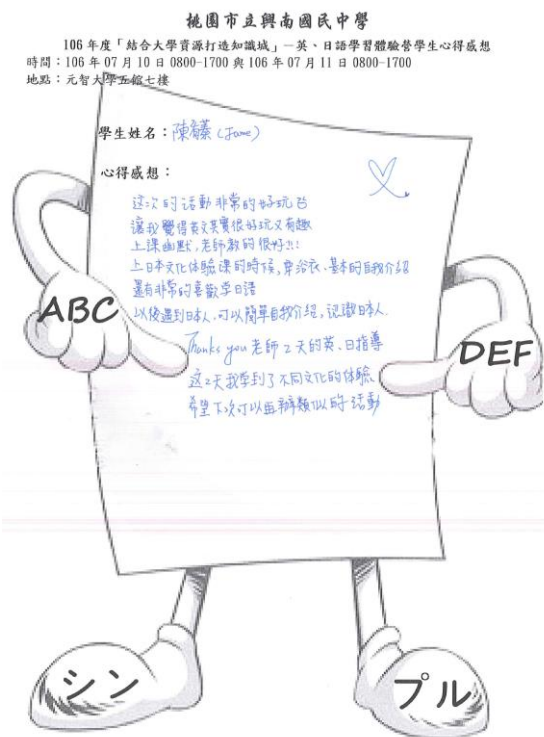 桃園市立興南國民中學
106 年度「結合大學資源打造知識城」－英、日語學習體驗營學生心得感想
時間：106 年 07 月 10 日 0800-1700 與 106 年 07 月 11 日 0800-1700
地點：元智大學五館七樓
學生姓名：陳蓁 (Jane)
心得感想：
這次的活動非常的好玩
讓我覺得英文其實很好玩又有趣
上課幽默,老師教的很好!!!
上日本文化体驗課的時候,穿浴衣、基本的自我介紹
還有非常的喜歡学日語
以後遇到日本人,可以簡單自我介紹,認識日本人.
ABC
Thanks you 老師 2 天的英、日指導
DEF
这2天我學到了不同文化的体驗
希望下次可以再辦類似的活動
シン
プル